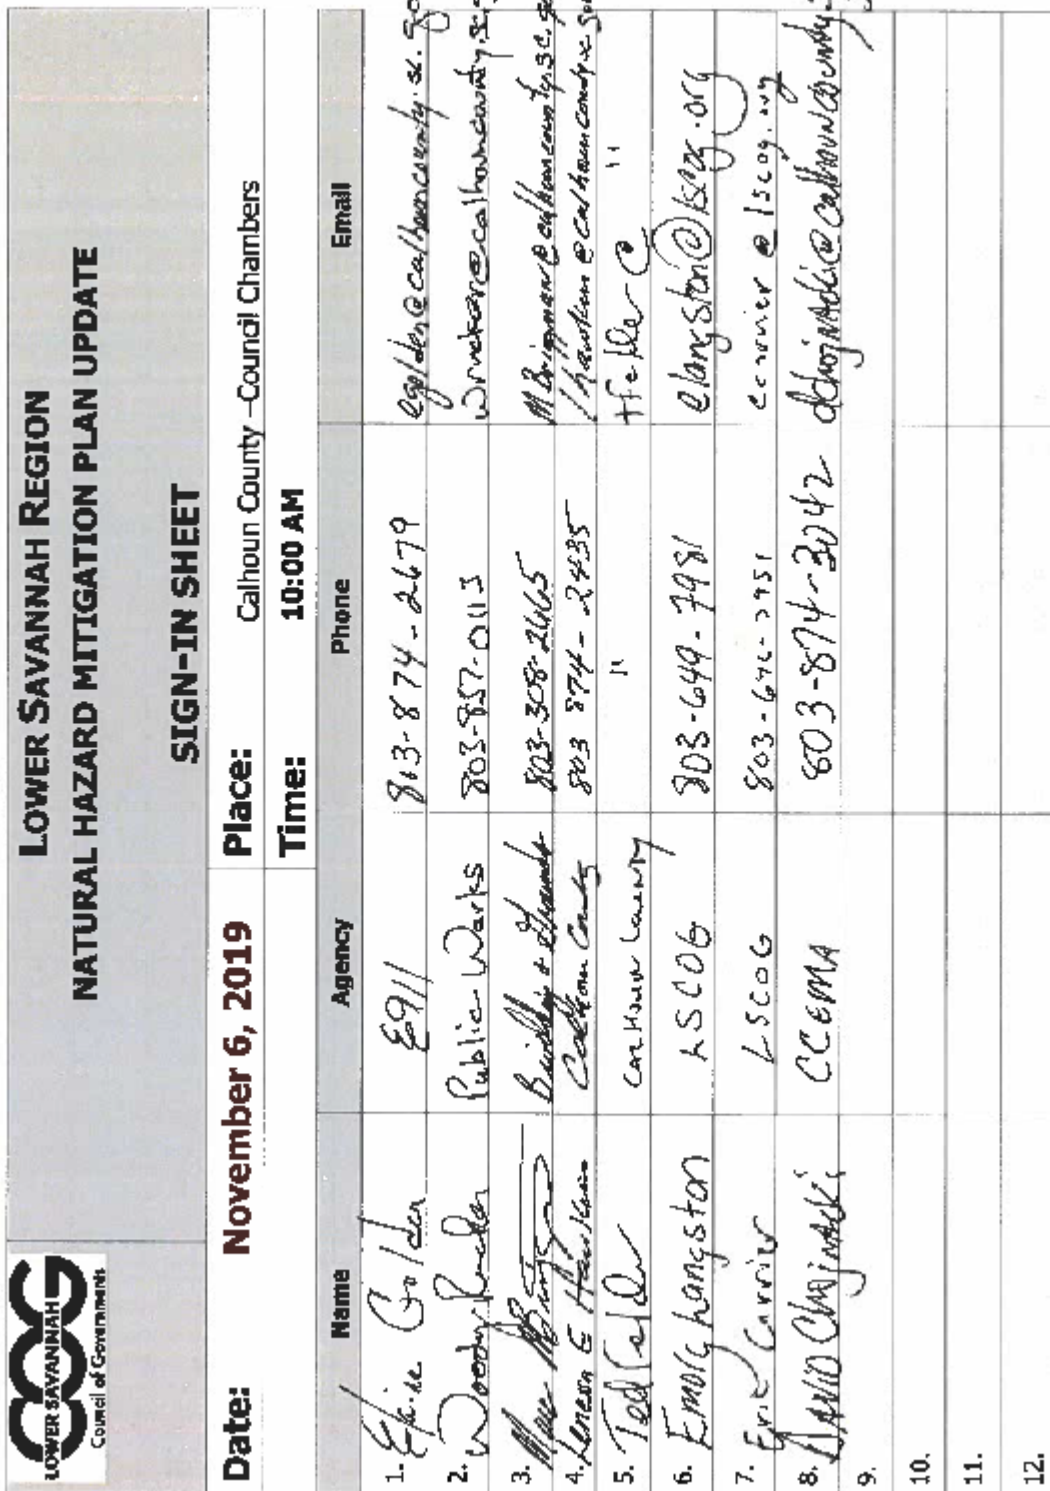 LOWER SAVANNAH
COG
Council of Governments
LOWER SAVANNAH REGION
NATURAL HAZARD MITIGATION PLAN UPDATE
SIGN-IN SHEET
Date: November 6, 2019 Place: Calhoun County -Council Chambers
Time: 10:00 AM
Name Agency Phone Email
1. Elaine Golden E911 813-874-2679 egolden@calhouncounty.sc.go
2. Woody Public Works 803-857-0113
3. Buildings & Grounds 803-308-2665
4. Lenesa E Hawkins Calhoun County 803 874-2435 lhawkins@calhouncounty.sc.gov
5. Ted Felder Calhoun County " tfelder@ "
6. Emory Langston LSCOG 803-649-7981 elangston@lscog.org
7. Eric Carrier LSCOG ecarrier@lscog.org
8. David Chojnacki CCEMA 803-874-3042 dchojnacki@calhouncounty.
9.
10.
11.
12.